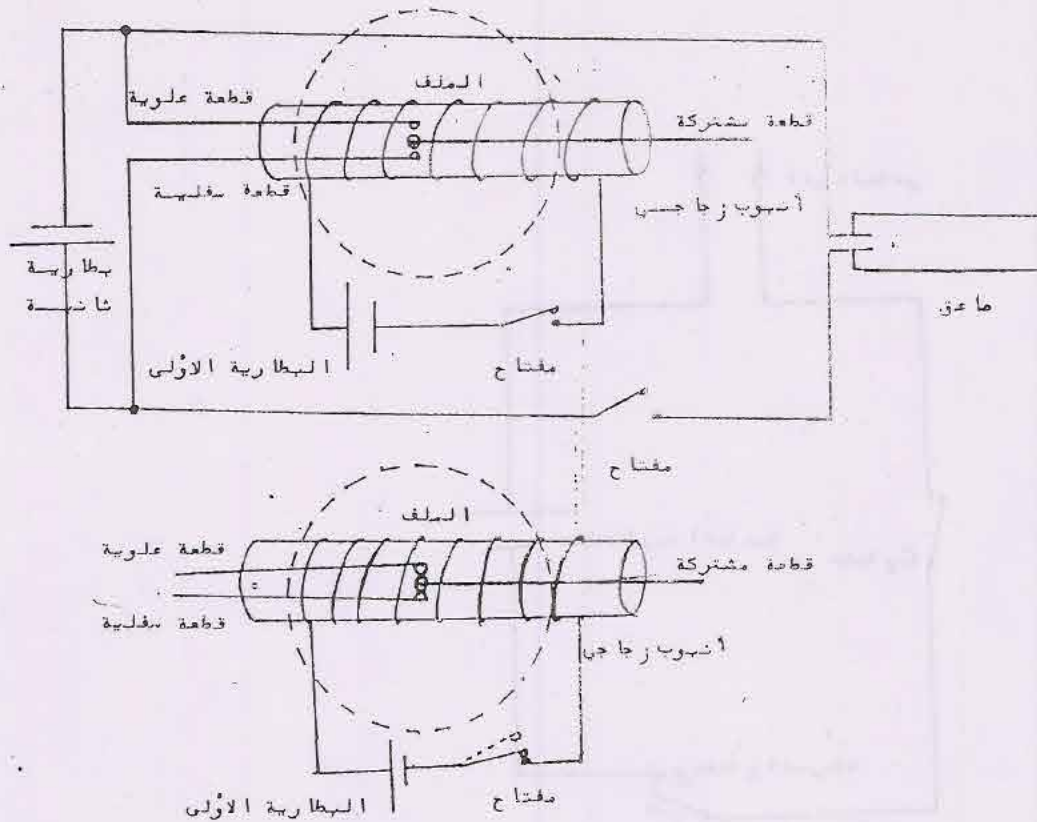 الملف
قطعة علوية
قطعة مشتركة
قطعة سفلية
أنبوب زجاجي
بطارية
ثانية
صاعق
البطارية الأولى
مفتاح
مفتاح
الملف
قطعة علوية
قطعة مشتركة
قطعة سفلية
أنبوب زجاجي
مفتاح
البطارية الأولى